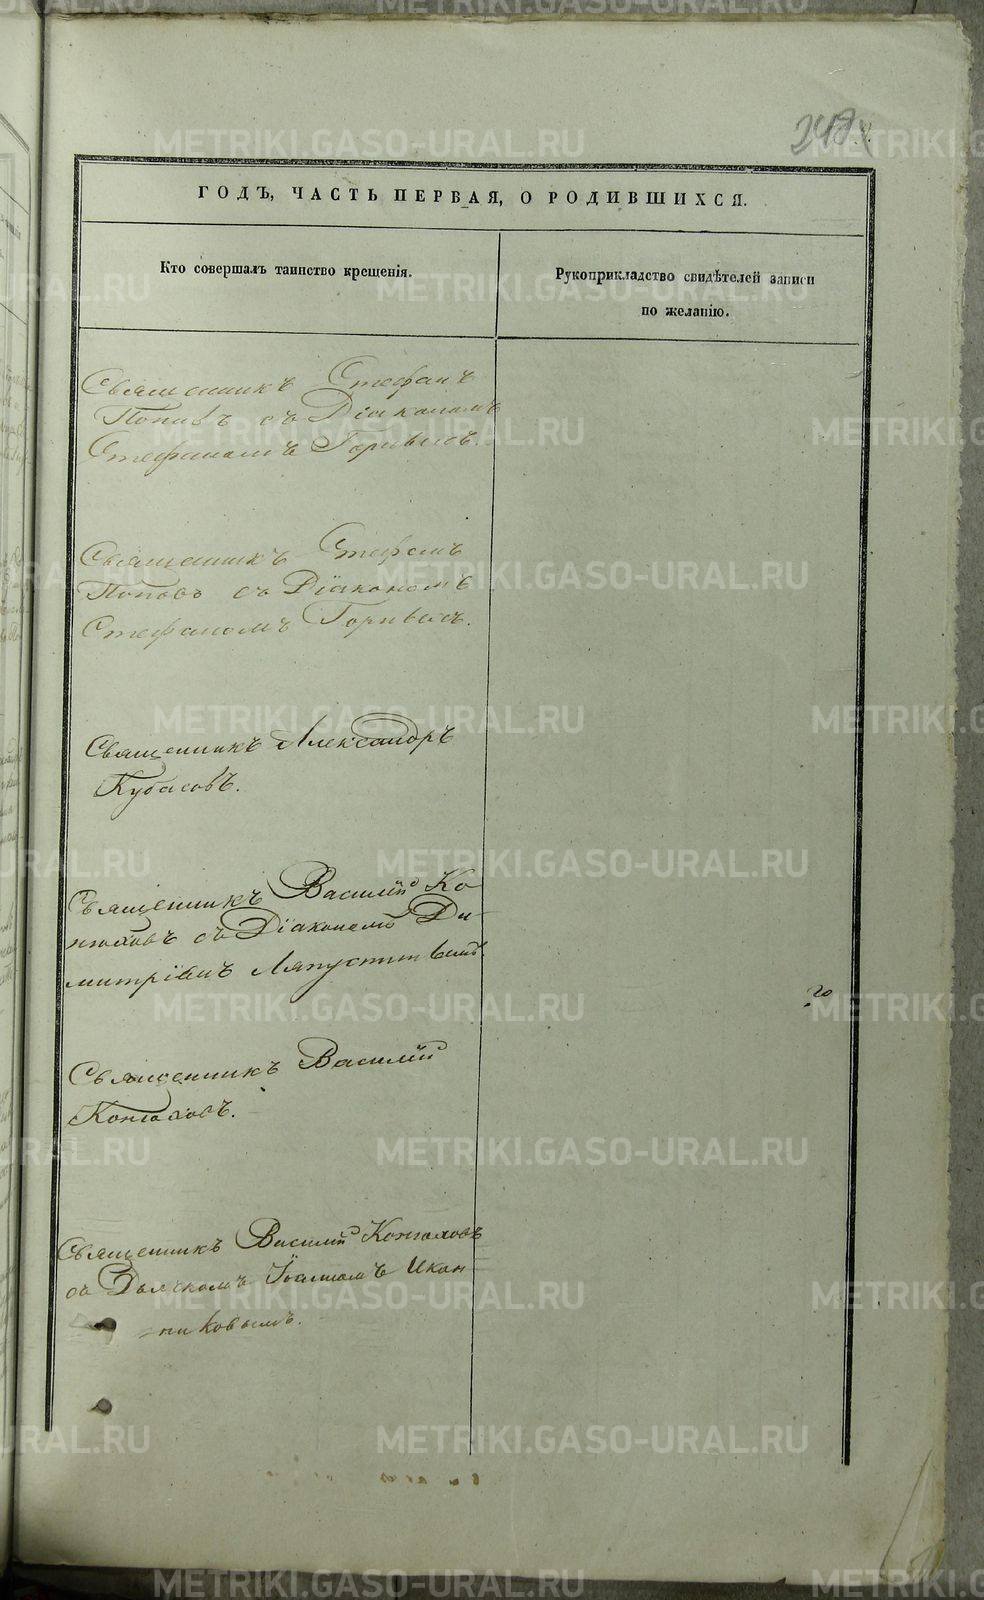 ГОДЪ, ЧАСТЬ ПЕРВАЯ, О РОДИВШИХСЯ.
Кто совершалъ таинство крещенія.
Рукоприкладство свидѣтелей записи
по желанію.
Священникъ Стефанъ
Поповъ съ Діакономъ
Стефаномъ
Священникъ Стефанъ
Поповъ съ Діакономъ
Стефаномъ
Священникъ Александръ
Кубасовъ.
Священникъ Василій Ко-
нюховъ съ Діакономъ Ди-
митріемъ Ляпустинымъ.
Священникъ Василій
Конюховъ.
Священникъ Василій Конюховъ
съ Дьячкомъ Іоанномъ Икон-
никовымъ.
METRIKI.GASO-URAL.RU